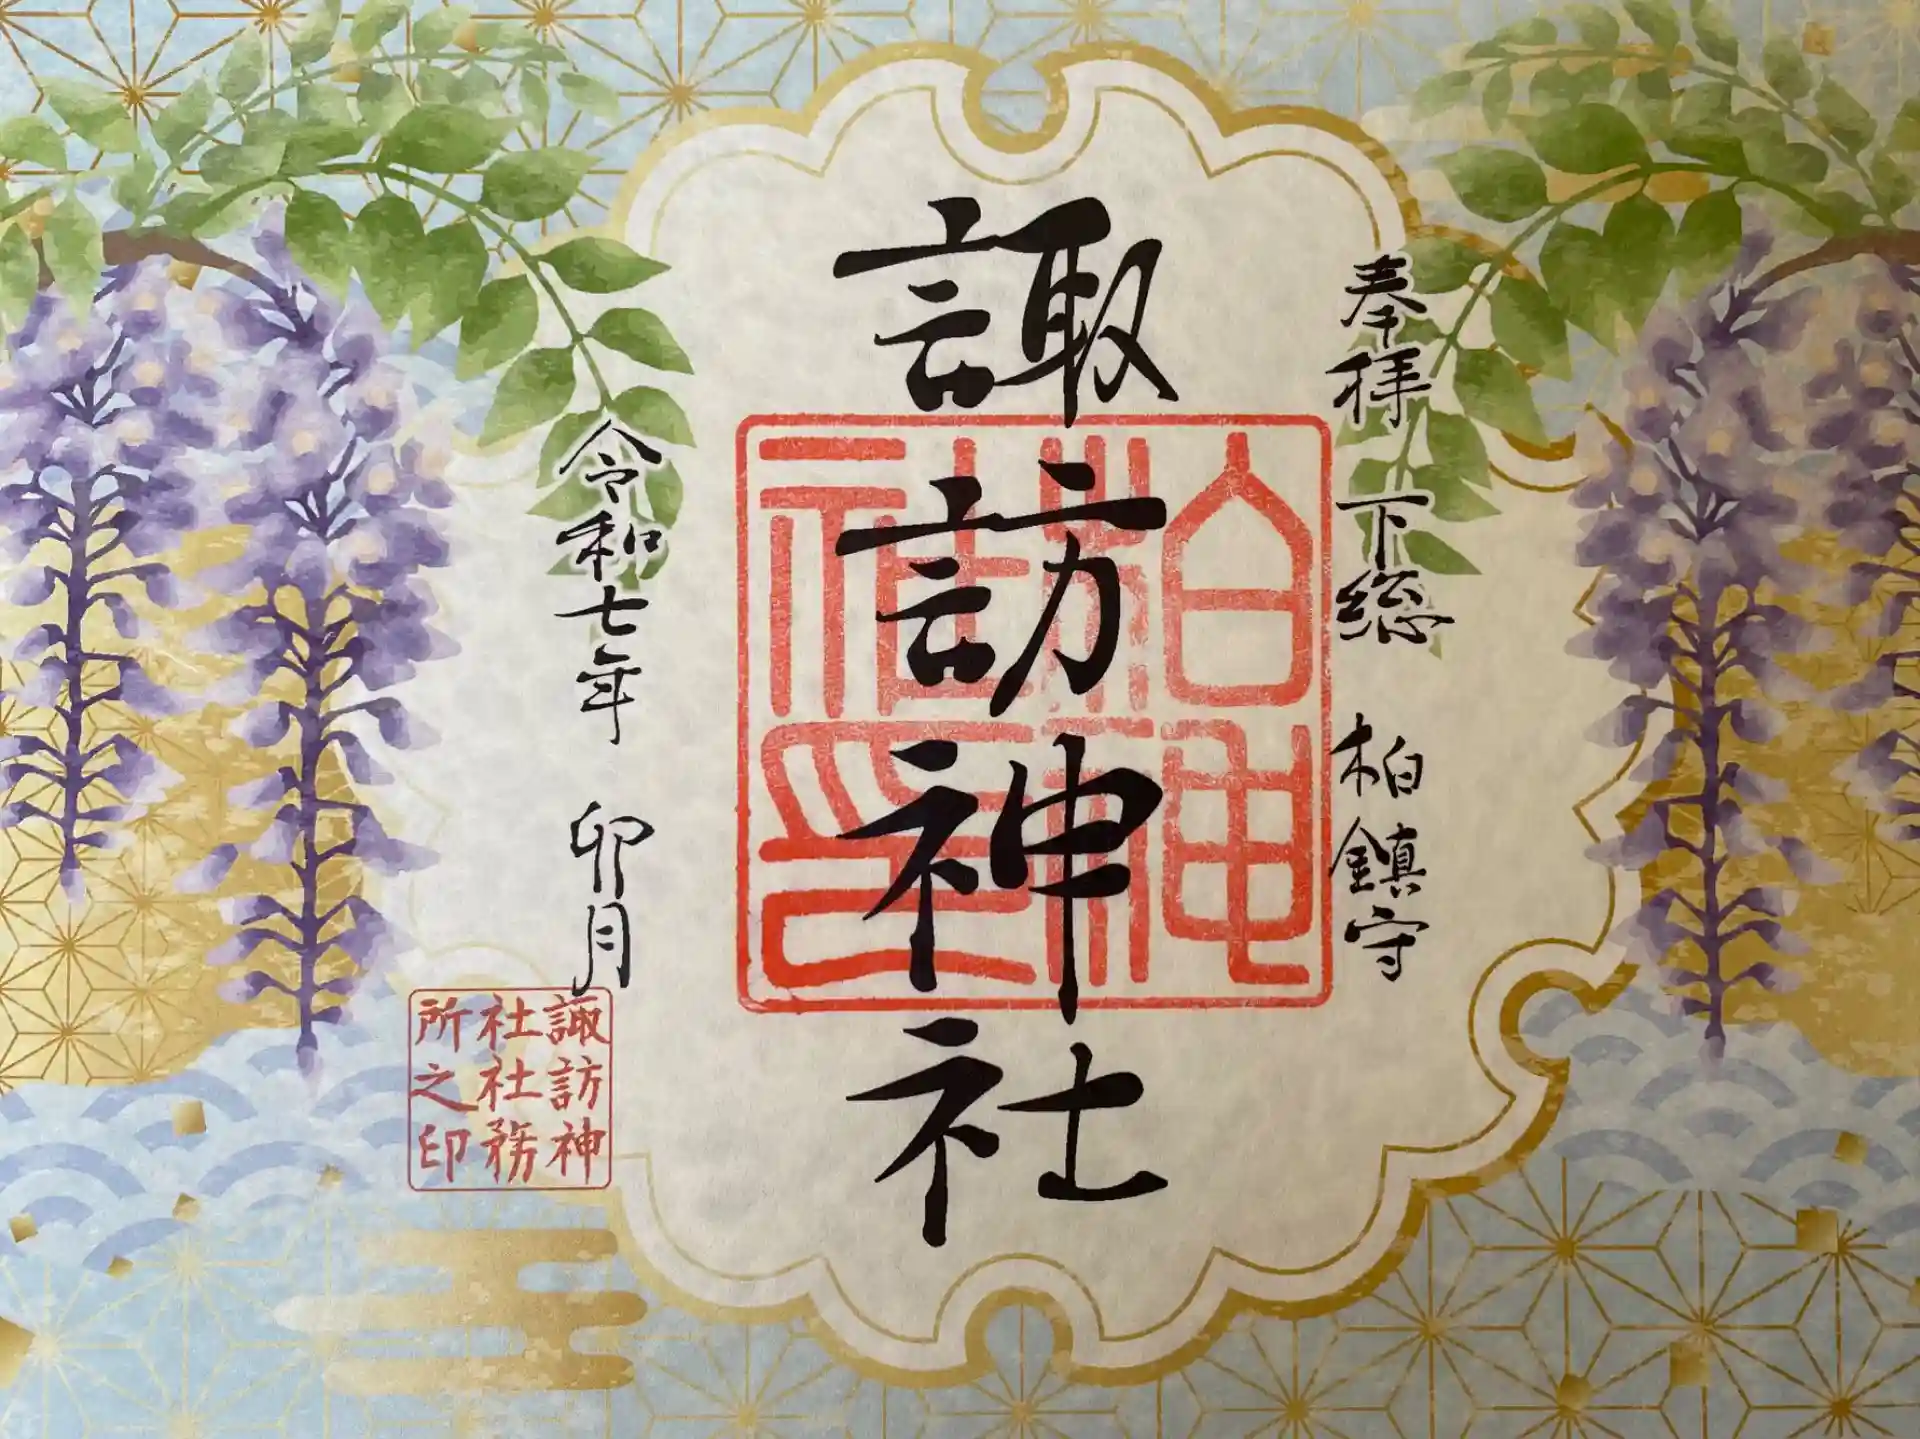 奉拝 下総 柏鎮守
諏訪神社
令和七年 卯月
柏神
社印
諏訪神
社社務
所之印